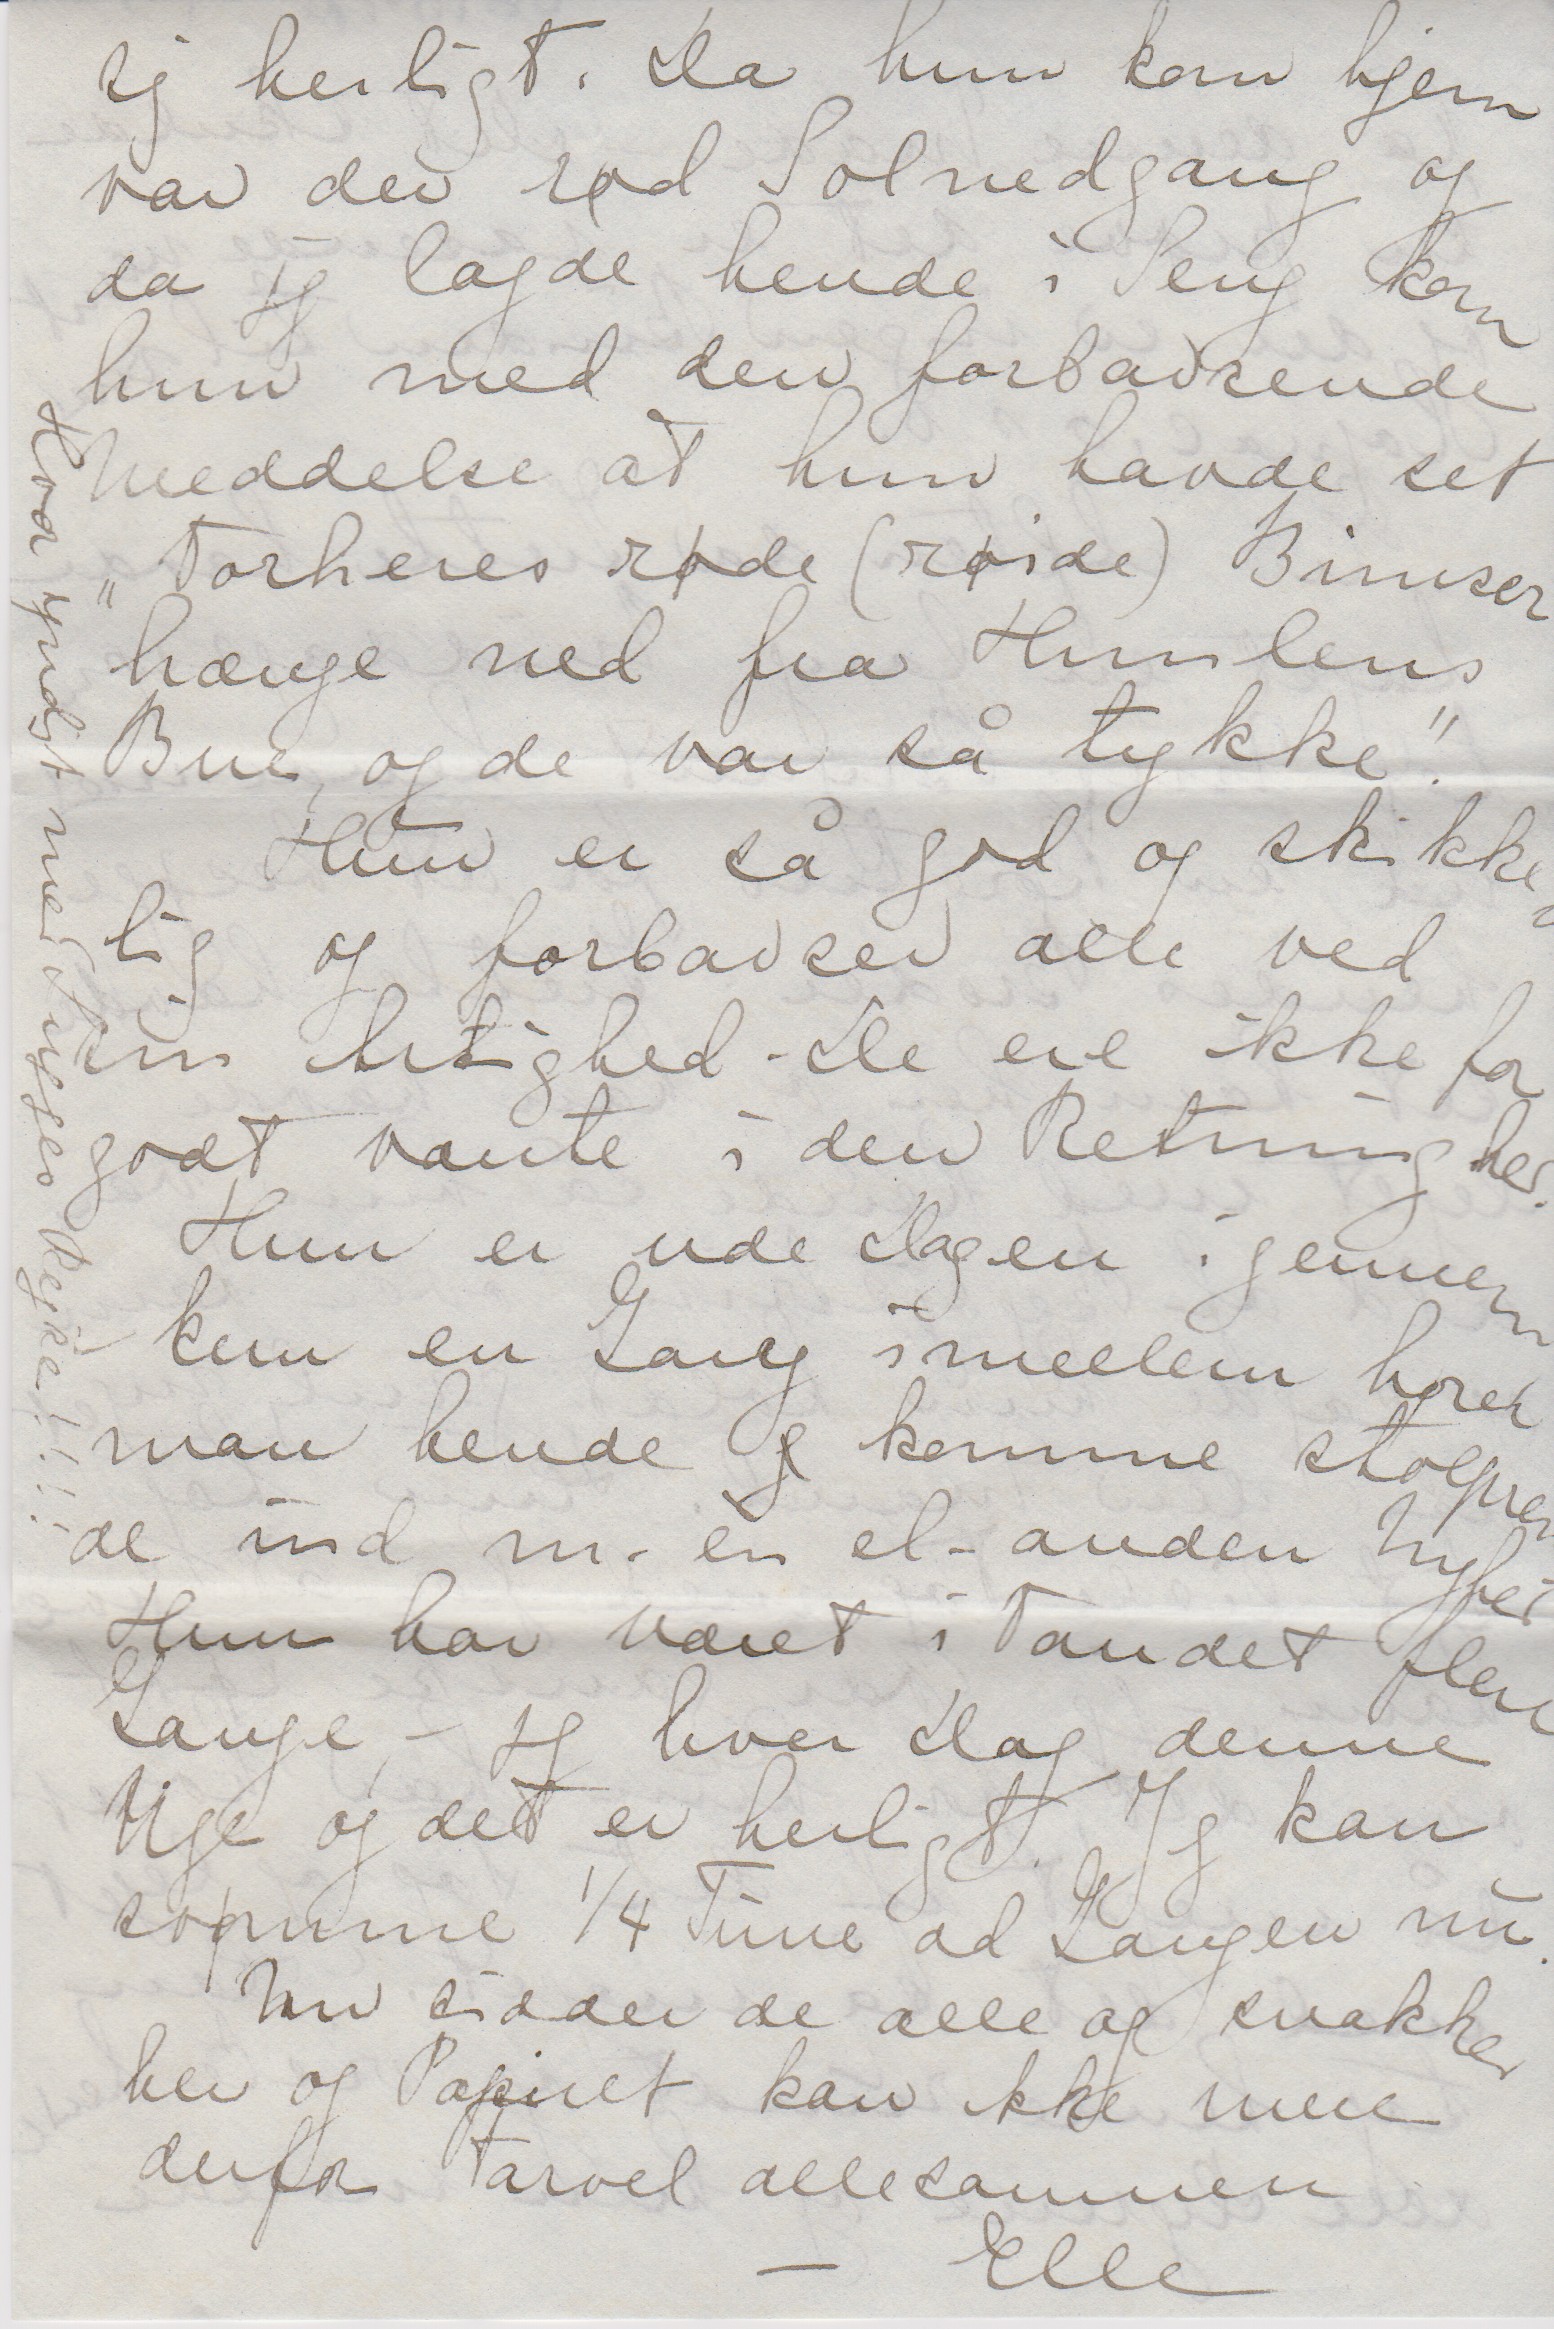 sig herligt. Da hun kom hjem
var der rød Solnedgang og
da jeg lagde hende i Seng kom
hun med den forbavsende
Meddelse at hun havde set
"Vorherres røde (røide) Bimser
hænge ned fra Himlens
Bue, og de var så tykke".
Hun er så god og skikke-
lig og forbavser alle ved
sin Artighed - De ere ikke for
godt vante i den Retning her.
Hun er ude Dagen igennem
kun en Gang imellem hører
man hende komme stolpren
de ind m. en el. anden Nyhed
Hun har været i Vandet flere
Gange, - jeg hver Dag denne
Uge og det er herligt. Jeg kan
svømme 1/4 Time ad Gangen nu.
Nu sidder de alle og snakker
her og Papiret kan ikke mere
derfor Farvel allesammen
- Elle
Hvor yndigt med Dygges Rejse!!!!